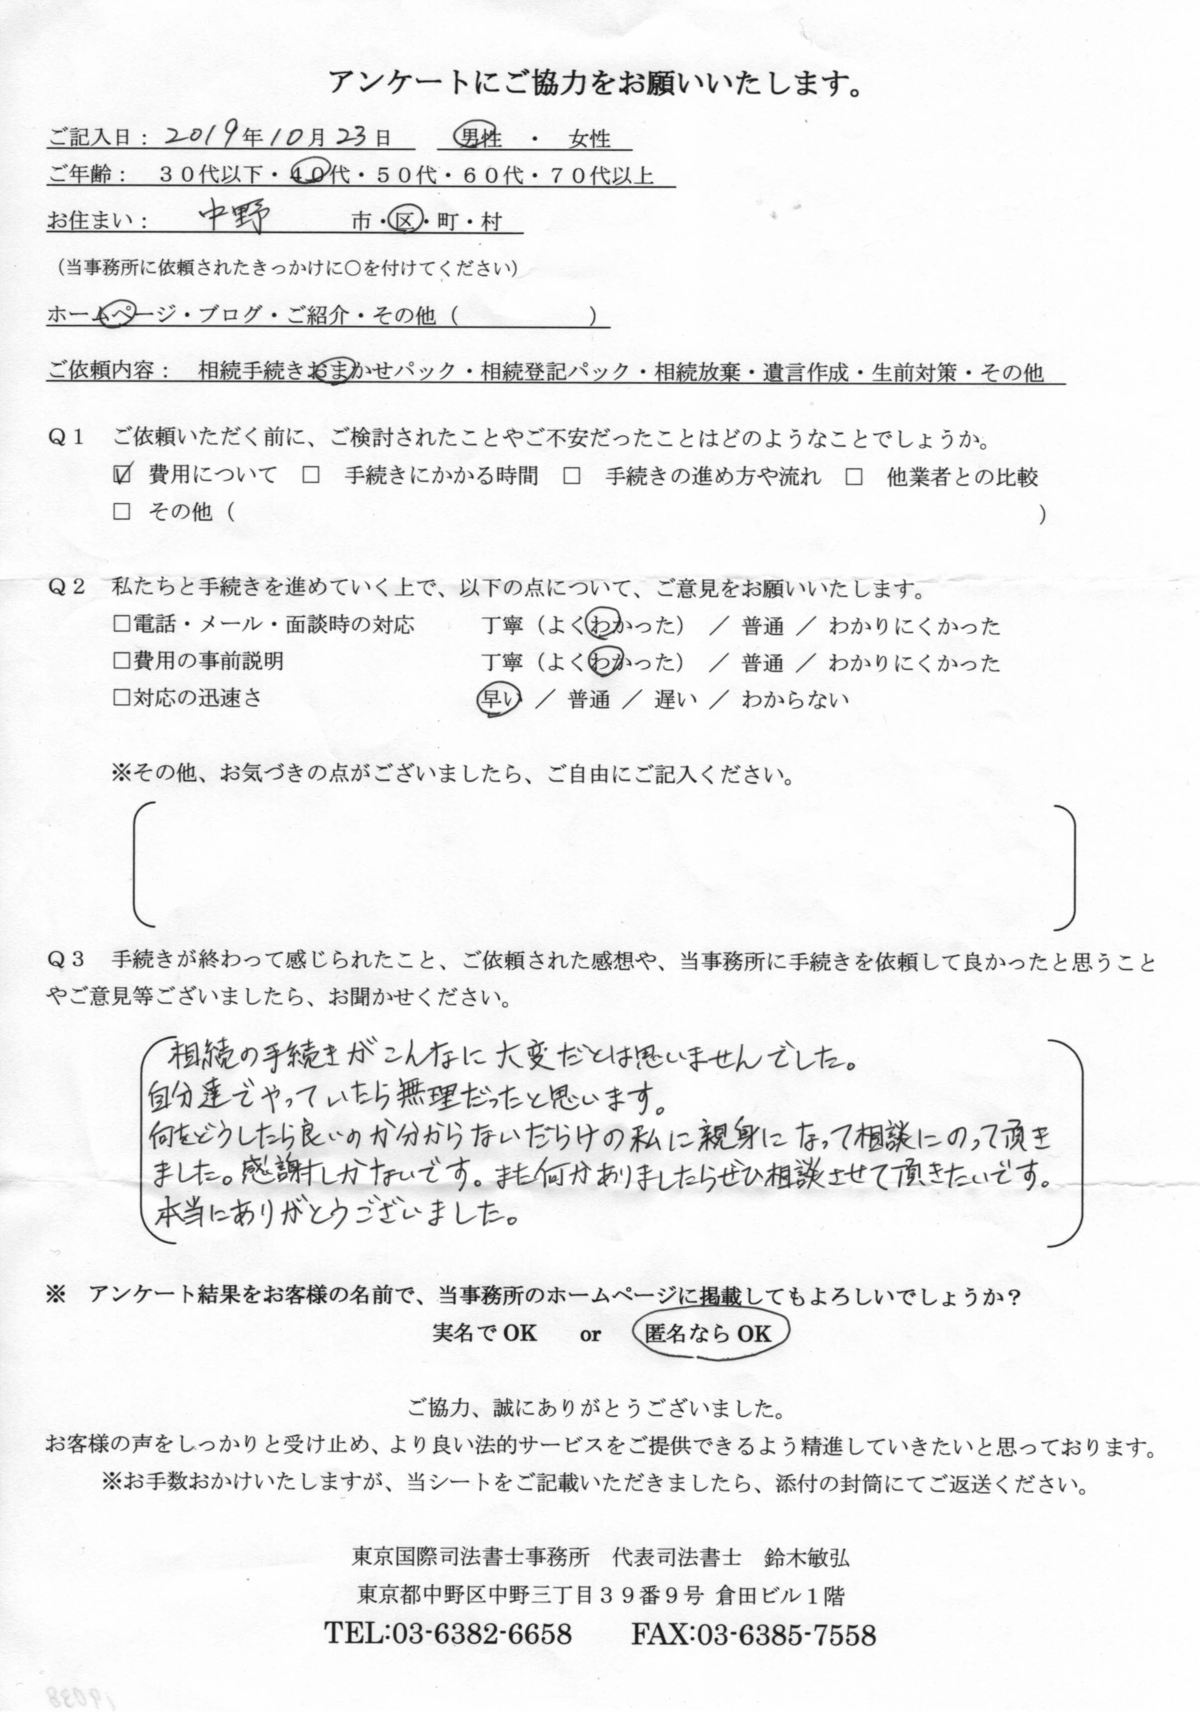 アンケートにご協力をお願いいたします。
ご記入日： 2019年10月23日　男性　・　女性
ご年齢：　３０代以下・４０代・５０代・６０代・７０代以上
お住まい：　中野　市・区・町・村
（当事務所に依頼されたきっかけに〇を付けてください）
ホームページ・ブログ・ご紹介・その他（　　　　　　）
ご依頼内容：　相続手続きおまかせパック・相続登記パック・相続放棄・遺言作成・生前対策・その他
Ｑ１　ご依頼いただく前に、ご検討されたことやご不安だったことはどのようなことでしょうか。
☑ 費用について　□　手続きにかかる時間　□　手続きの進め方や流れ　□　他業者との比較
□ その他（　　　　　　　　　　）
Ｑ２　私たちと手続きを進めていく上で、以下の点について、ご意見をお願いいたします。
□電話・メール・面談時の対応　　丁寧（よくわかった）　／ 普通 ／ わかりにくかった
□費用の事前説明　　丁寧（よくわかった）　／ 普通 ／ わかりにくかった
□対応の迅速さ　　早い ／ 普通 ／ 遅い ／ わからない
※その他、お気づきの点がございましたら、ご自由にご記入ください。
Ｑ３　手続きが終わって感じられたこと、ご依頼された感想や、当事務所に手続きを依頼して良かったと思うこと
やご意見等ございましたら、お聞かせください。
相続の手続きがこんなに大変だとは思いませんでした。
自分達でやっていたら無理だったと思います。
何をどうしたら良いのか分からないだらけの私に親身になって相談にのって頂き
ました。感謝しかないです。また何かありましたらぜひ相談させて頂きたいです。
本当にありがとうございました。
※　アンケート結果をお客様の名前で、当事務所のホームページに掲載してもよろしいでしょうか？
実名でOK　or　匿名ならOK
ご協力、誠にありがとうございました。
お客様の声をしっかりと受け止め、より良い法的サービスをご提供できるよう精進していきたいと思っております。
※お手数おかけいたしますが、当シートをご記載いただきましたら、添付の封筒にてご返送ください。
東京国際司法書士事務所　代表司法書士　鈴木敏弘
東京都中野区中野三丁目３９番９号 倉田ビル１階
TEL:03-6382-6658　FAX:03-6385-7558